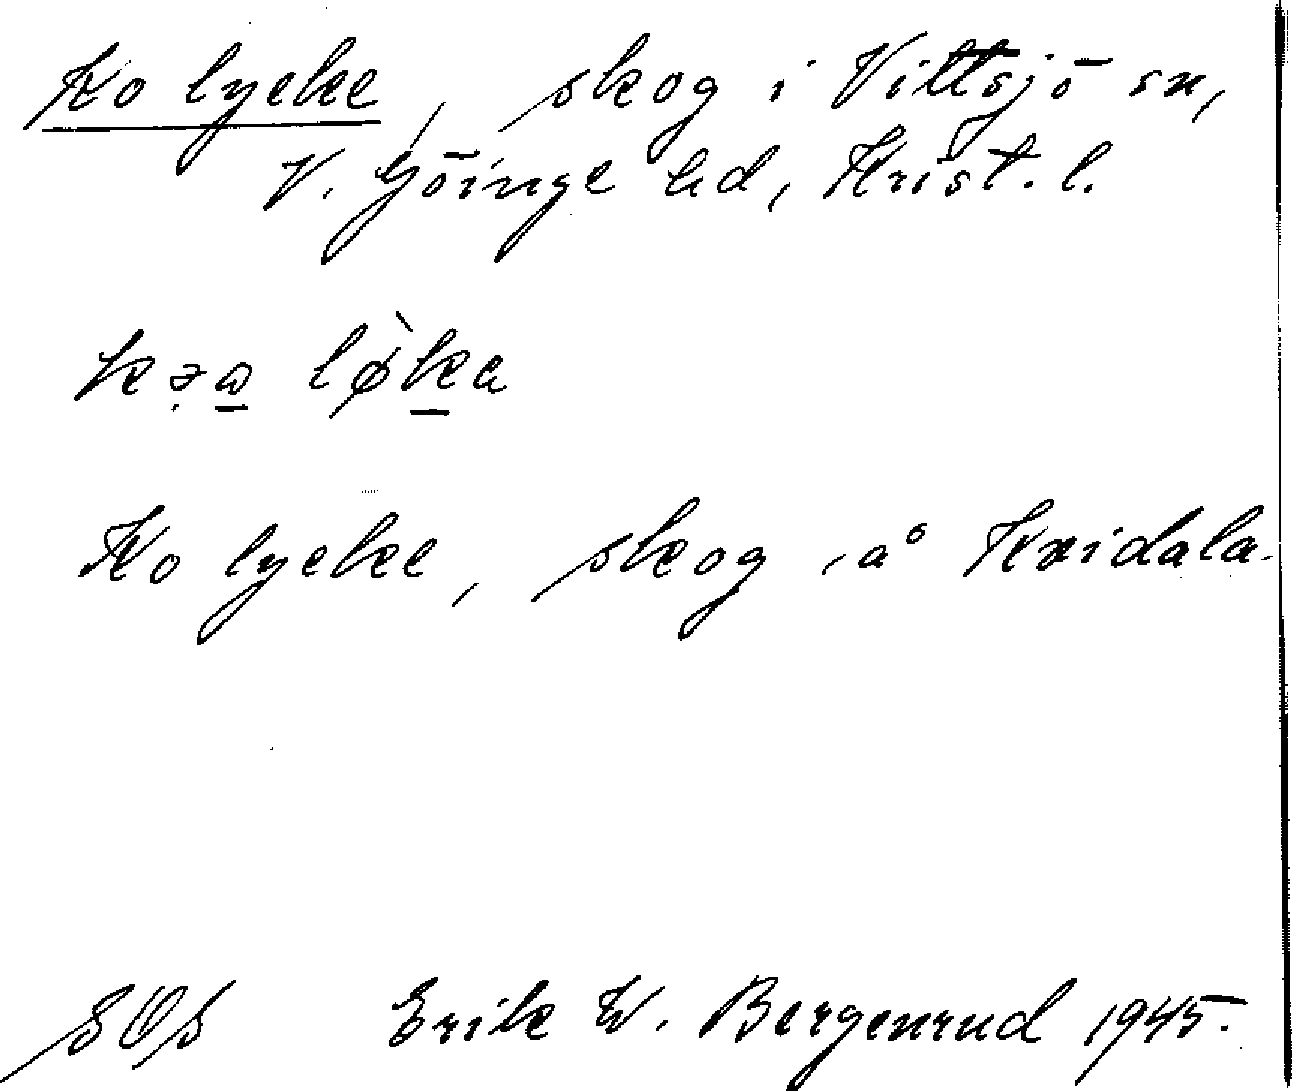 Ko lycke, skog i Vittsjö sn,
V. Göinge hd, Krist. l.
Ko lycke, skog, å Kvidala.
SOS Erik W. Bergenrud 1945.